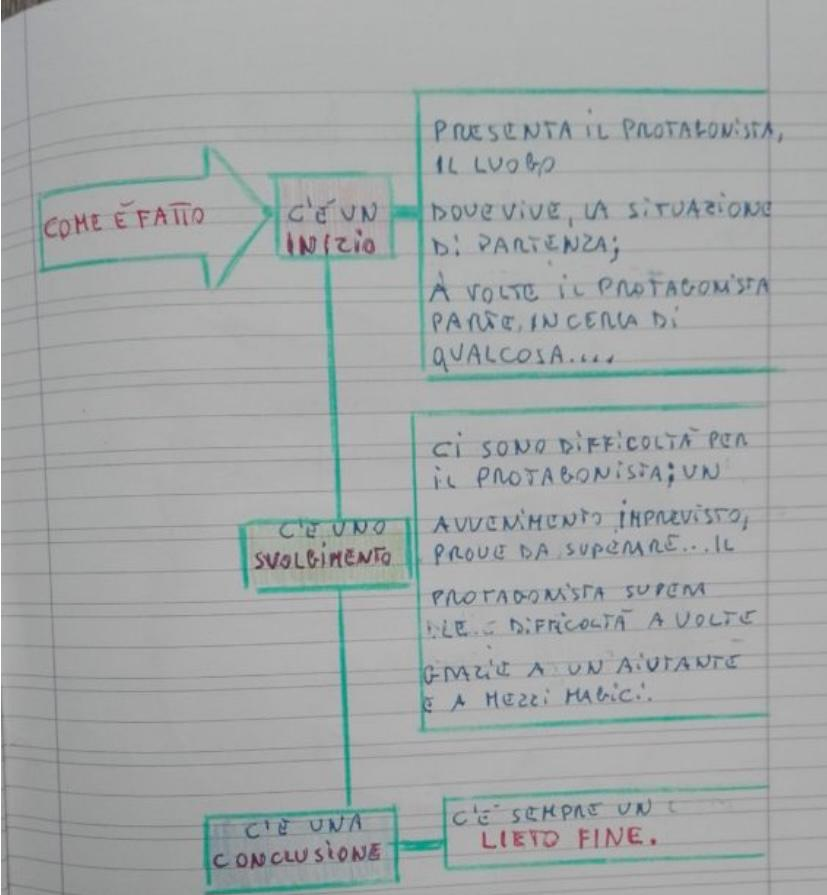 COME È FATTO
C'È UN
INIZIO
PRESENTA IL PROTAGONISTA,
IL LUOGO
DOVE VIVE, LA SITUAZIONE
DI PARTENZA;
A VOLTE IL PROTAGONISTA
PARTE, IN CERCA DI
QUALCOSA....
C'È UNO
SVOLGIMENTO
CI SONO DIFFICOLTÀ PER
IL PROTAGONISTA; UN
AVVENIMENTO IMPREVISTO,
PROVE DA SUPERARE... IL
PROTAGONISTA SUPERA
LE DIFFICOLTÀ A VOLTE
GRAZIE A UN AIUTANTE
E A MEZZI MAGICI.
C'È UNA
CONCLUSIONE
C'È SEMPRE UN
LIETO FINE.